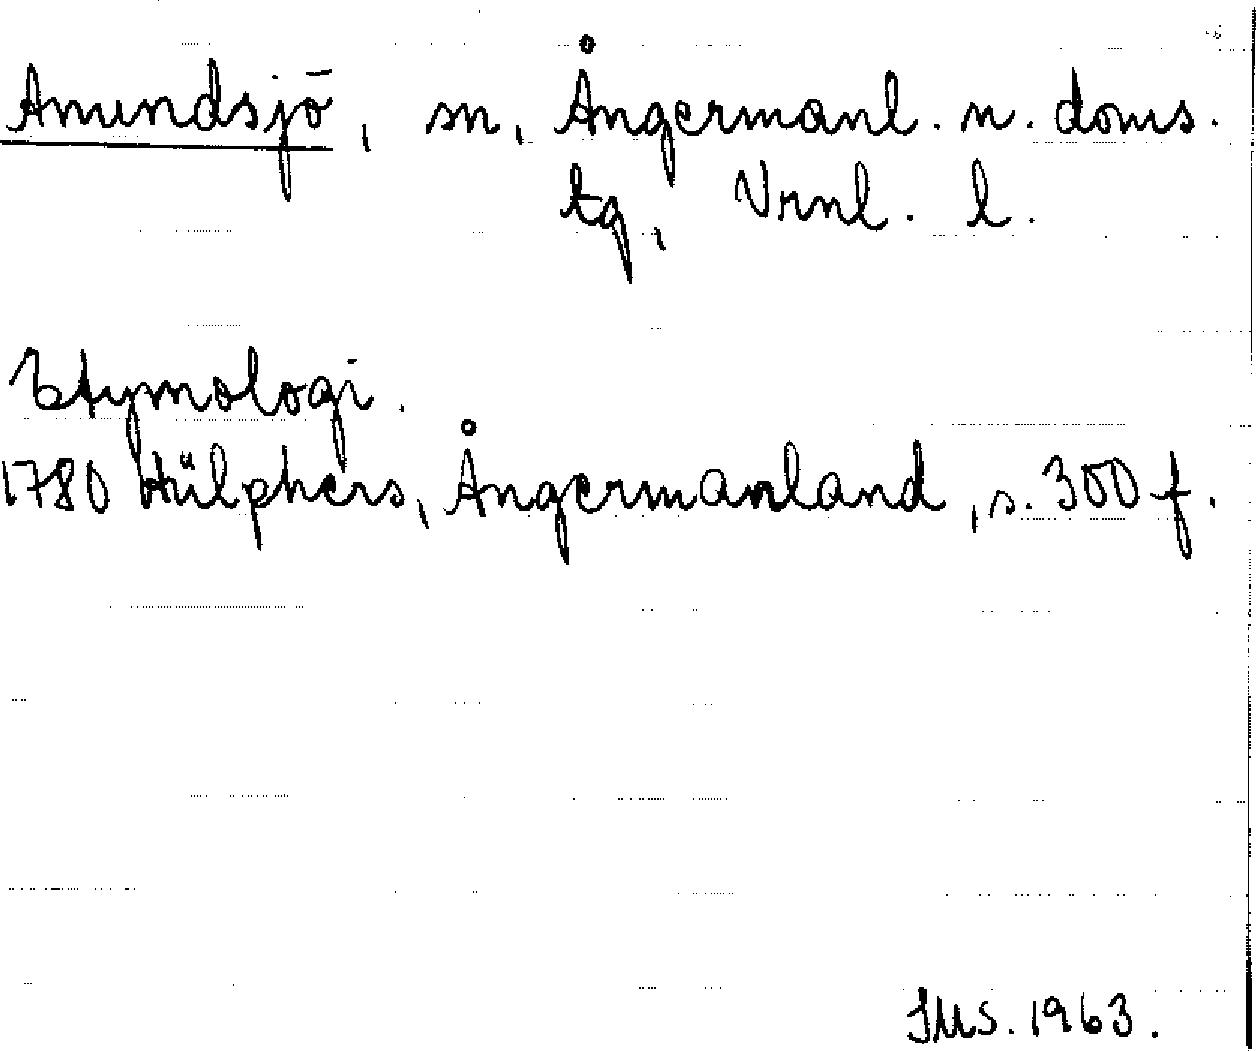 Anundsjö, sn, Ångermanl. n. doms.
tg, Vrnl. l.
Etymologi.
1780 Hülphers, Ångermanland, s. 300 f.
IMS. 1963.